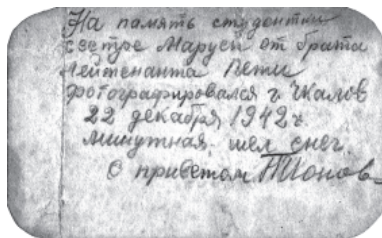 На память студентки
сестре Марусе от брата
лейтенанта Пети
фотографировался г. Чкалов
22 декабря 1942 г.
минутная. шел снег.
С приветом